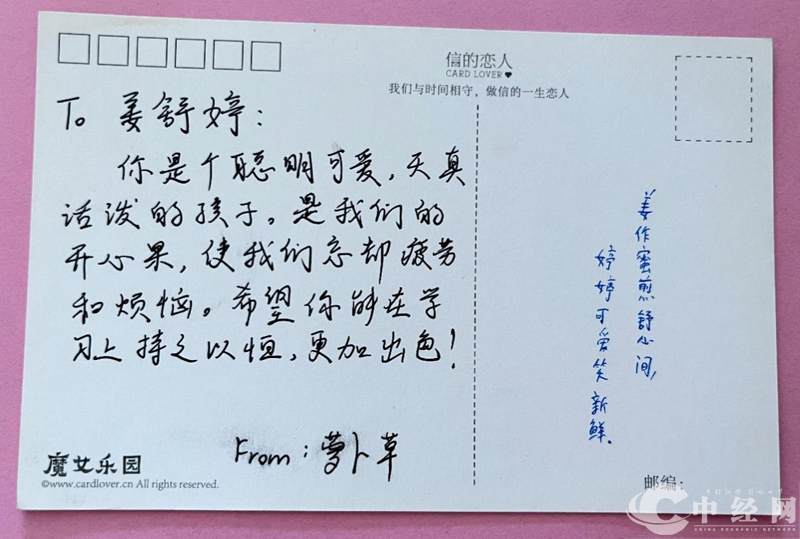 信的恋人
CARD LOVER♥
我们与时间相守，做信的一生恋人
To 姜舒婷：
你是个聪明可爱，天真
活泼的孩子。是我们的
开心果，使我们忘却疲劳
和烦恼。希望你能在学
习上持之以恒，更加出色！
From：萝卜草
姜作蜜煎舒心间，
婷婷可爱笑新鲜．
魔女乐园
©www.cardlover.cn All rights reserved.
邮编：
中经网
CHINA ECONOMIC NETWORK